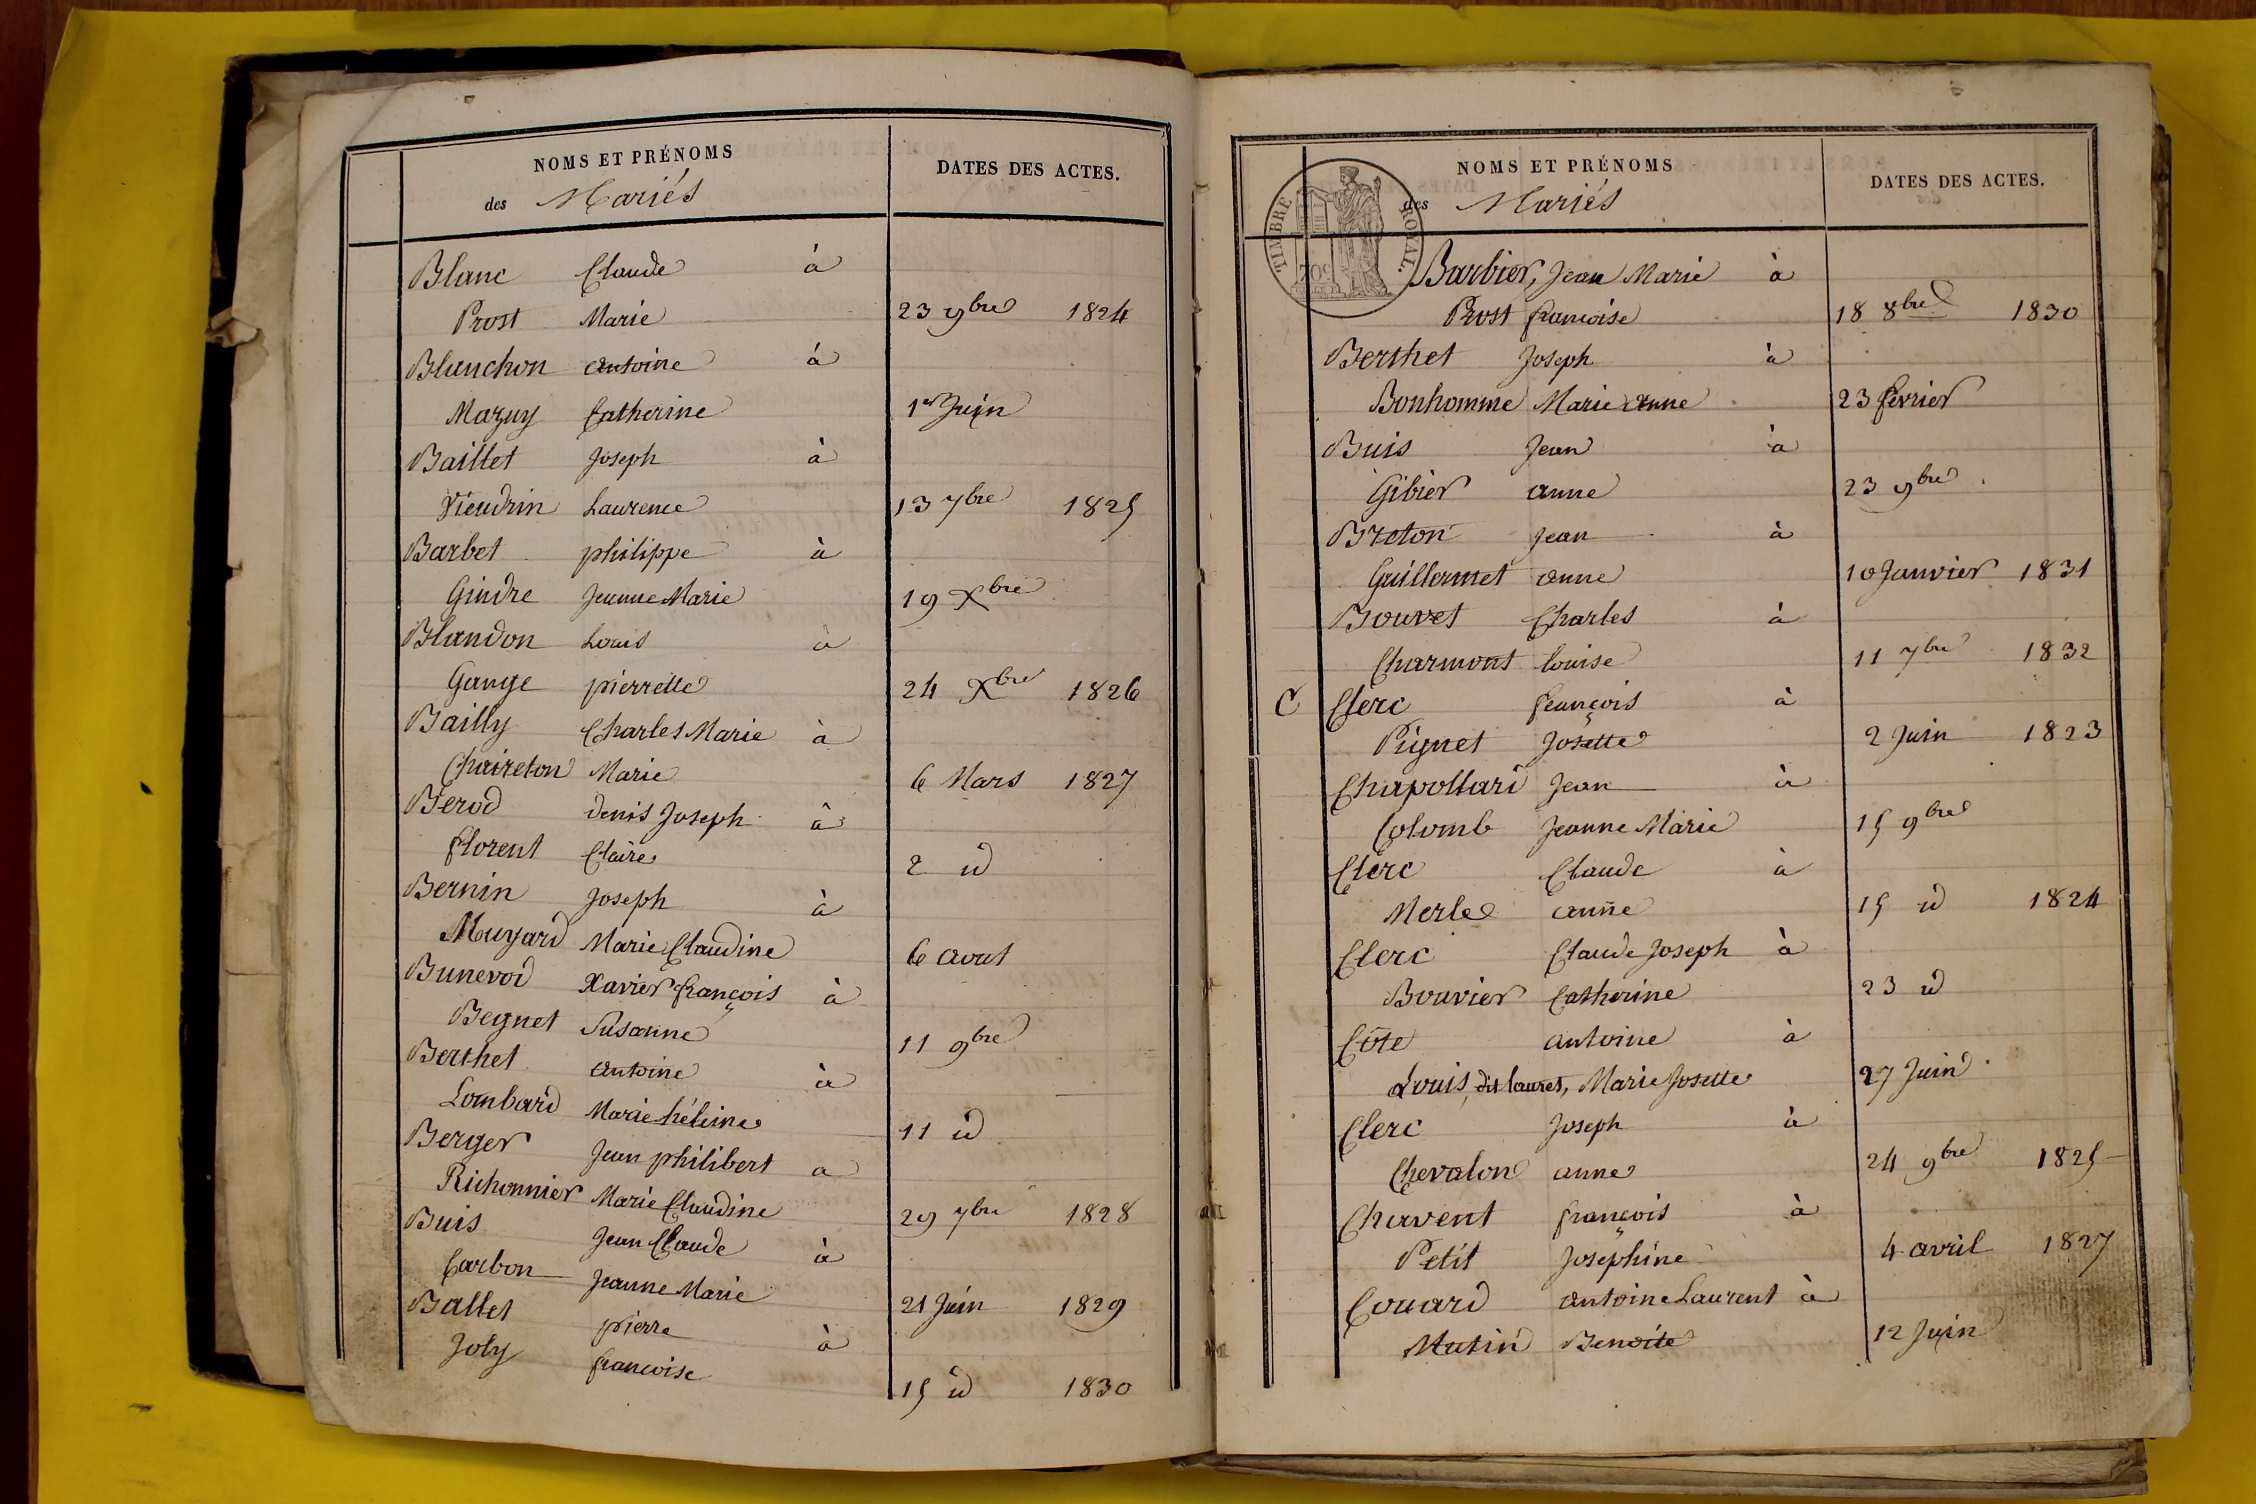 NOMS ET PRÉNOMS
des Mariés
DATES DES ACTES.
Blanc Claude à
Prost Marie 23 9bre 1824
Blanchon antoine à
Mazuy Catherine 1er Juin
Baillet Joseph à
Vieudrin Laurence 13 7bre 1825
Barbet philippe à
Gindre Jeanne Marie 19 Xbre
Blandon Louis à
Gange pierrette 24 Xbre 1826
Bailly Charles Marie à
Chaireton Marie 6 Mars 1827
Berod denis Joseph à
florent Claire 2 id
Bernin Joseph à
Muyard Marie Claudine 6 aout
Bunevod Xavier françois à
Begnet Susanne 11 9bre
Berthet antoine à
Lombard Marie héleine 11 id
Berger Jean philibert a
Richonnier Marie Claudine 29 7bre 1828
Buis Jean Claude à
Carbon Jeanne Marie 21 Juin 1829
Ballet pierre à
Joly francoise 15 id 1830
TIMBRE ROYAL.
70C
NOMS ET PRÉNOMS
des Mariés
DATES DES ACTES.
Barbier, Jean Marie à
Prost francoise 18 8bre 1830
Berthet Joseph à
Bonhomme Marie anne 23 février
Buis Jean à
Gibier anne 23 9bre
Breton Jean à
Guillermet anne 10 Janvier 1831
Bouvet Charles à
Charmont louise 11 7bre 1832
C Clerc françois à
Pignet Josette 2 Juin 1823
Chapottari Jean à
Colomb Jeanne Marie 15 9bre
Clerc Claude à
Merle anne 15 id 1824
Clerc Claude Joseph à
Bouvier Catherine 23 id
Côte antoine à
Louis, dit lauret, Marie Josette 27 Juin
Clerc Joseph à
Chevalon anne 24 9bre 1825
Chavent françois à
Petit Josephine 4 avril 1827
Couard antoine Laurent à
Mutin Benoite 12 Juin